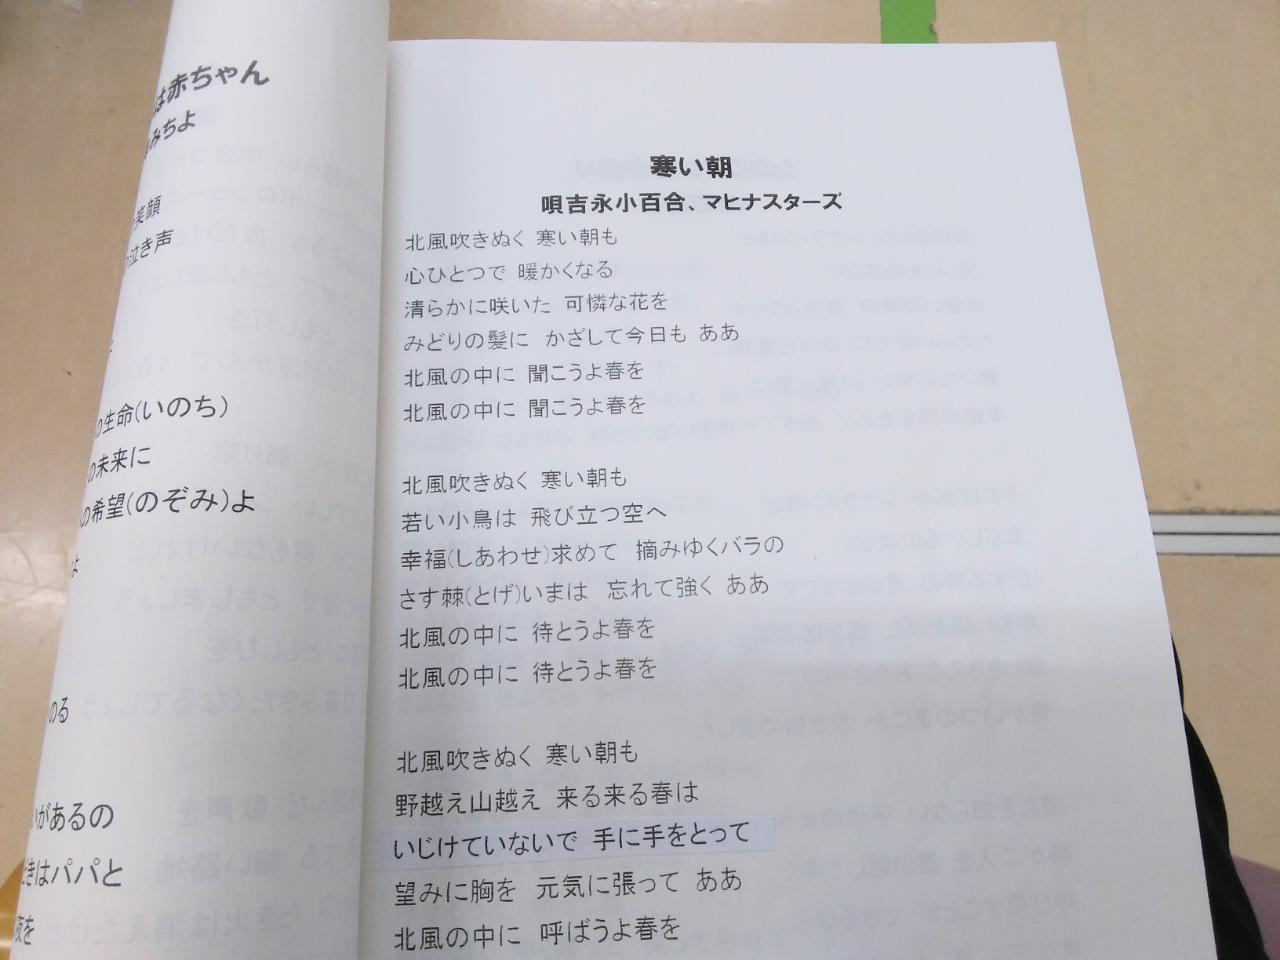 は赤ちゃん
みちよ
笑顔
泣き声
の生命(いのち)
の未来に
の希望(のぞみ)よ
よ
のる
いがあるの
ときはパパと
夜を
寒い朝
唄吉永小百合、マヒナスターズ
北風吹きぬく 寒い朝も
心ひとつで 暖かくなる
清らかに咲いた 可憐な花を
みどりの髪に かざして今日も ああ
北風の中に 聞こうよ春を
北風の中に 聞こうよ春を
北風吹きぬく 寒い朝も
若い小鳥は 飛び立つ空へ
幸福(しあわせ)求めて 摘みゆくバラの
さす棘(とげ)いまは 忘れて強く ああ
北風の中に 待とうよ春を
北風の中に 待とうよ春を
北風吹きぬく 寒い朝も
野越え山越え 来る来る春は
いじけていないで 手に手をとって
望みに胸を 元気に張って ああ
北風の中に 呼ばうよ春を